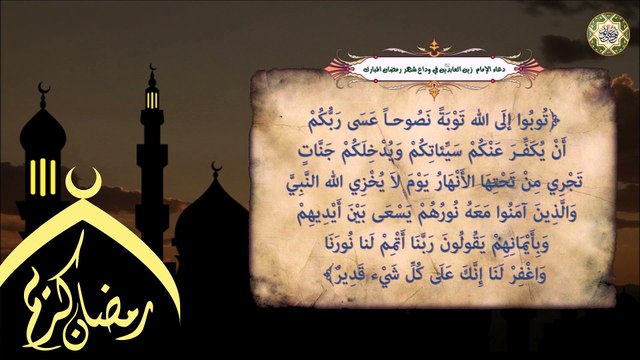 دعاء الإمام زين العابدين في وداع شهر رمضان المبارك
﴿تُوبُوا إلَى الله تَوْبَةً نَصُوحـاً عَسَى رَبُّكُمْ
أَنْ يُكَفِّـرَ عَنْكُمْ سَيِّئاتِكُمْ وَيُدْخِلَكُمْ جَنَّاتٍ
تَجْرِي مِنْ تَحْتِهَا الأَنْهَارُ يَوْمَ لاَ يُخْزِي الله النَّبِيَّ
وَالَّذِينَ آمَنُوا مَعَهُ نُورُهُمْ يَسْعَى بَيْنَ أَيْدِيهِمْ
وَبِأَيْمَانِهِمْ يَقُولُونَ رَبَّنَا أَتْمِمْ لَنا نُورَنَا
وَاغْفِرْ لَنَا إنَّكَ عَلَى كُلِّ شَيْء قَدِيرٌ﴾
رمضان كريم